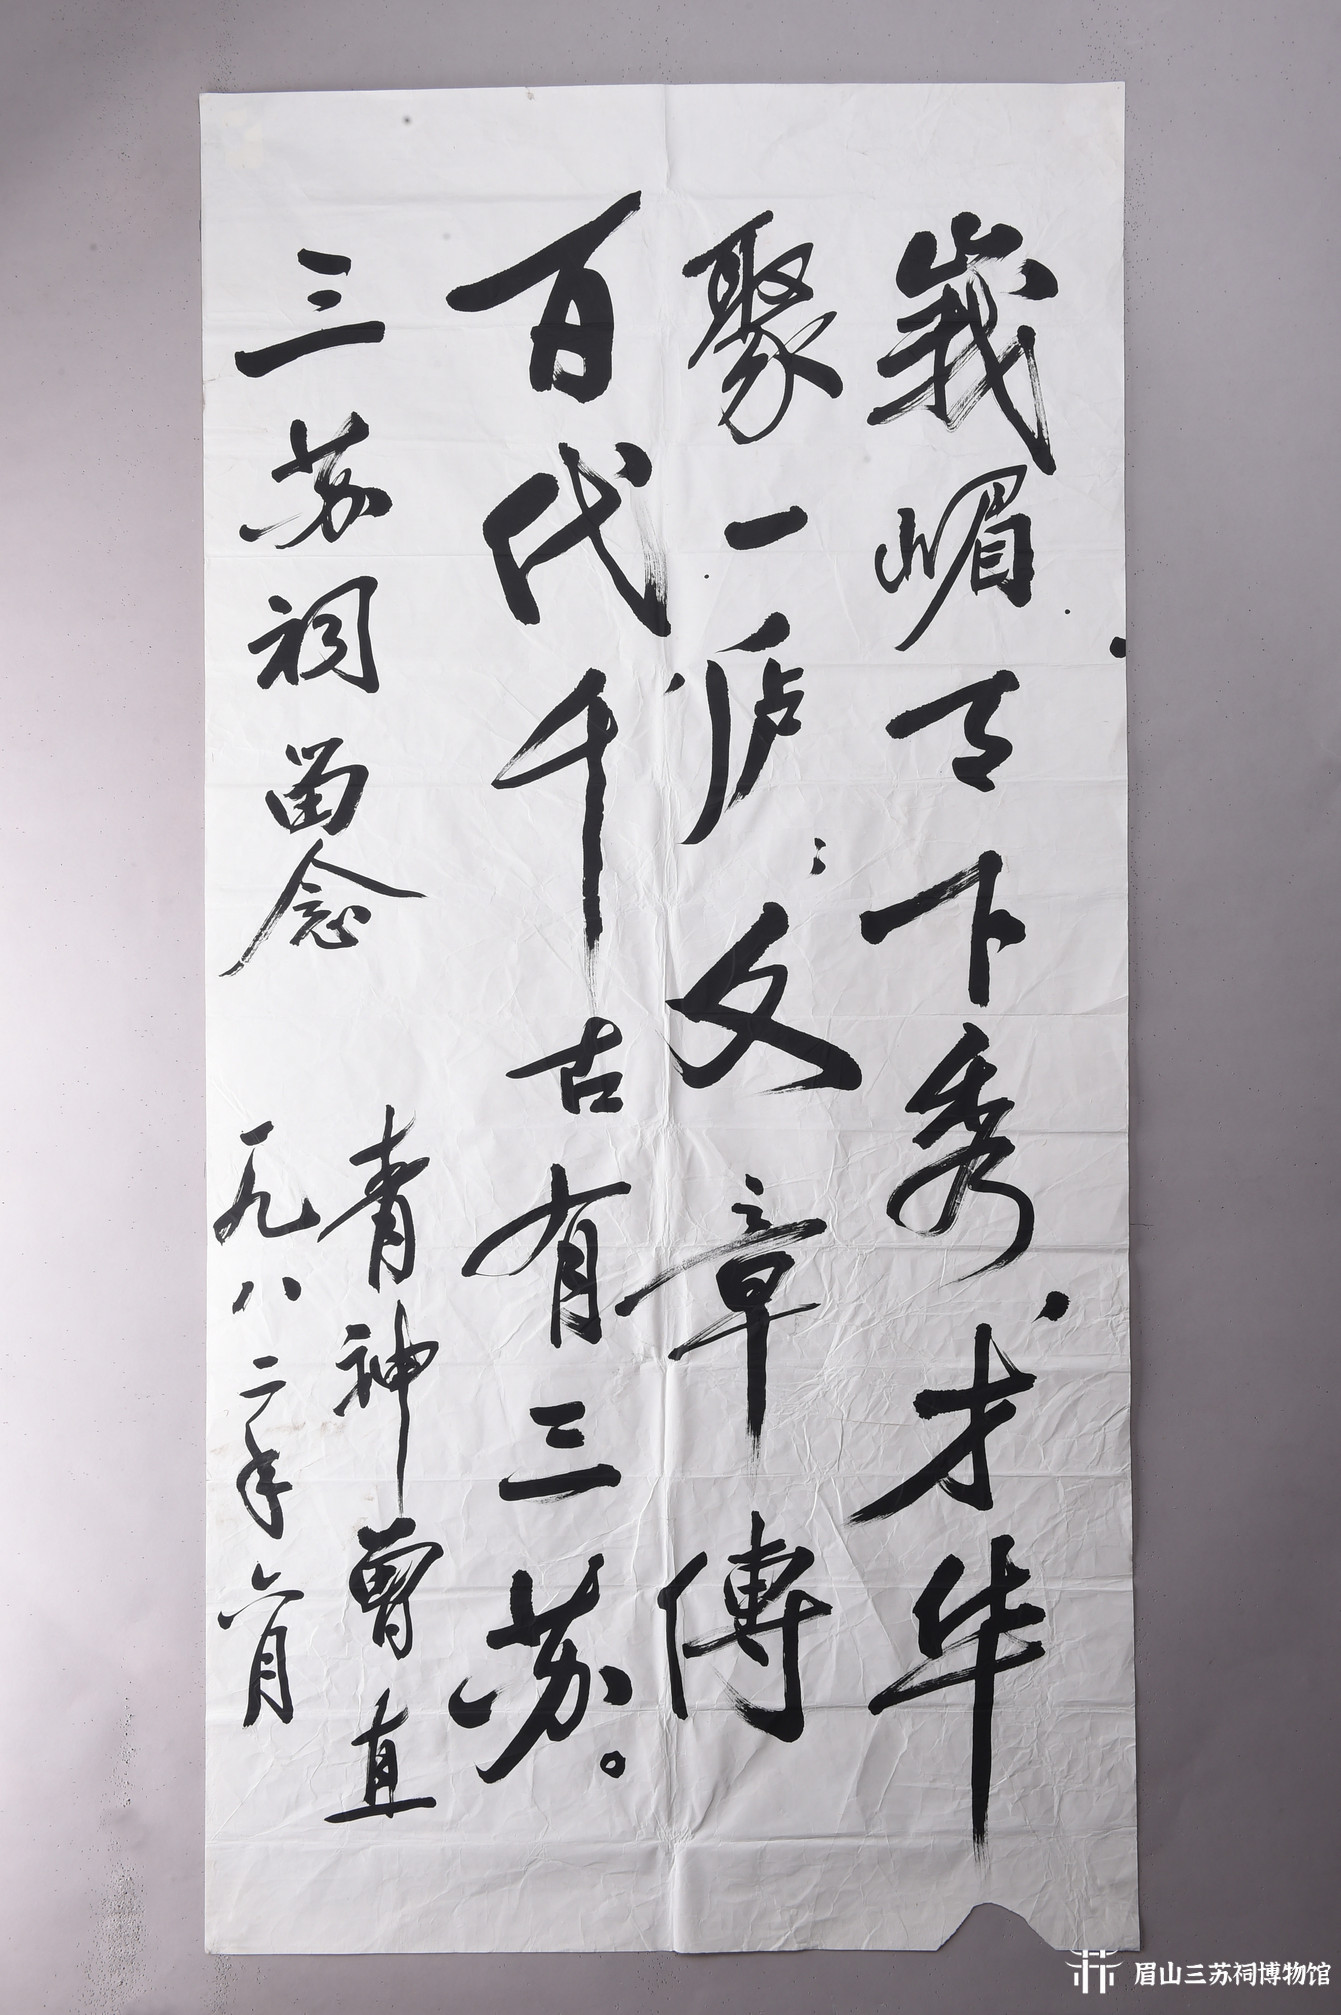 峩嵋天下秀，才华
聚一庐；文章傳
百代千古有三苏。
三苏祠留念
青神曾直
一九八二年六月
眉山三苏祠博物馆